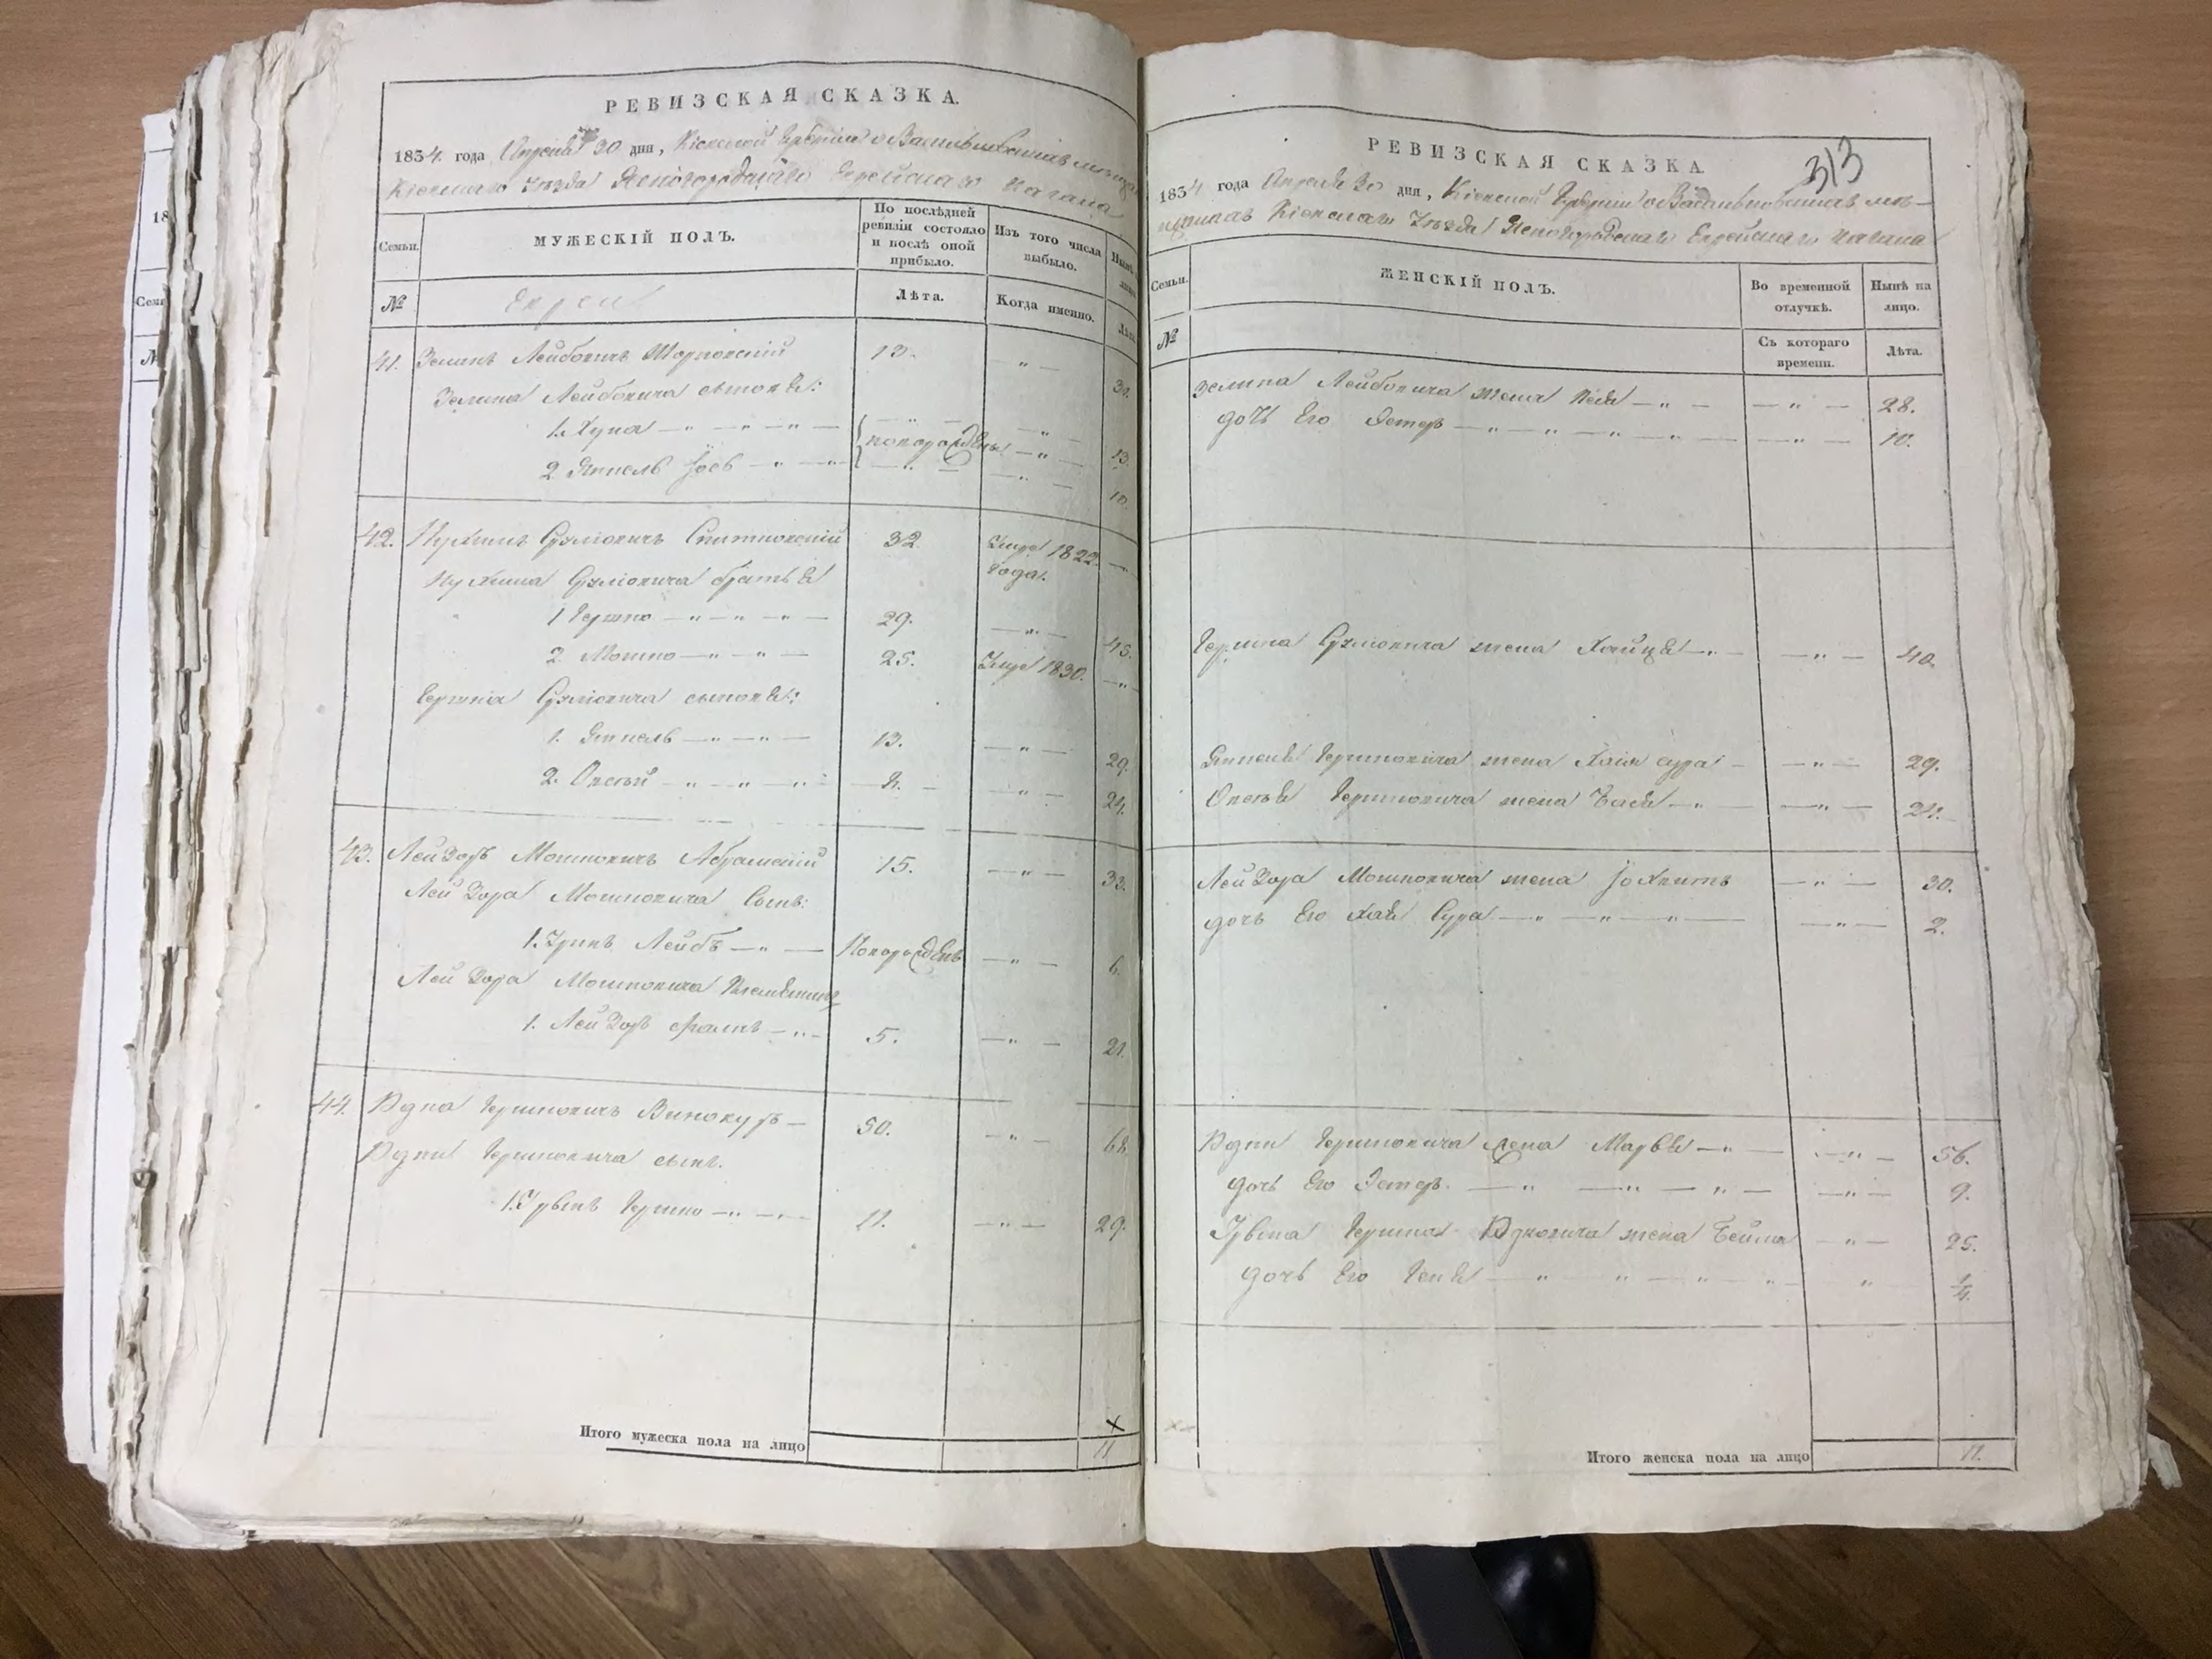 РЕВИЗСКАЯ СКАЗКА.
1834. года Апреля 30 дня, Кіевской Губерніи о Васильковскихъ
Кіевскаго Уѣзда Ясногородскаго Еврейскаго Кагала
Семьи.
МУЖЕСКІЙ ПОЛЪ.
По послѣдней ревизіи состояло и послѣ оной прибыло.
Изъ того числа выбыло.
№
Евреи
Лѣта.
Когда именно.
41. Зелинъ Лейбовичъ 13. „
Зелина Лейбовича сыновья:
1. — „ — „ — „ — „ — 13.
новорождены
2. Янкель Іось — „ — „ 10.
42. Сруліовичъ 32. Умре 1822. года.
Сруліовича братья
1 Гершко — „ — „ — „ — 29. — „ — 45.
2. Мошко — „ — „ — 25. Умре 1830. — „
Гершка Сруліовича сыновья:
1. Янкель — „ — „ — 13. — „ — 29.
2. Овсѣй — „ — „ — „ — „ — 24.
43. Лейзоръ Мошковичъ Абрамскій 15. — „ — 33.
Лейзора Мошковича Сынъ:
1. Лейбъ — „ — Новорожденъ — „ — 6.
Лейзора Мошковича Племянникъ
1. Лейзоръ — „ — 5. — „ — 21.
44. Юдка Гершковичъ Винокуръ — 50. — „ — 68.
Юдки Гершковича сынъ.
1. Гершко — „ — „ — 11. — „ — 29.
Итого мужеска пола на лицо 11
РЕВИЗСКАЯ СКАЗКА
313
1834 года Апреля 30 дня, Кіевской Губерніи о Васильковскихъ мѣ-
щанахъ Кіевскаго Уѣзда Ясногородскаго Еврейскаго Кагала
Семьи.
ЖЕНСКІЙ ПОЛЪ.
Во временной отлучкѣ.
Нынѣ на лицо.
№
Съ котораго времени.
Лѣта.
Зелина Лейбовича жена — „ — — „ — 28.
дочь Его Эстеръ — „ — „ — „ — „ — — „ — 10.
Гершка Сруліовича жена Хайця — „ — — „ — 40.
Янкеля Гершковича жена Хайя сура — — „ — 29.
Овсѣя Гершковича жена Бася — „ — — „ — 24.
Лейзора Мошковича жена Іохвитъ — „ — 30.
дочь Его Хая Сура — „ — „ — „ — — „ — 2.
Юдки Гершковича жена Марьѣя — „ — — „ — 56.
дочь Его Эстеръ. — „ — „ — „ — — „ — 9.
Гершка Юдковича жена Бейла — „ — 25.
дочь Его Геня — „ „ — „ — „ — „ 1/4.
Итого женска пола на лицо 11.